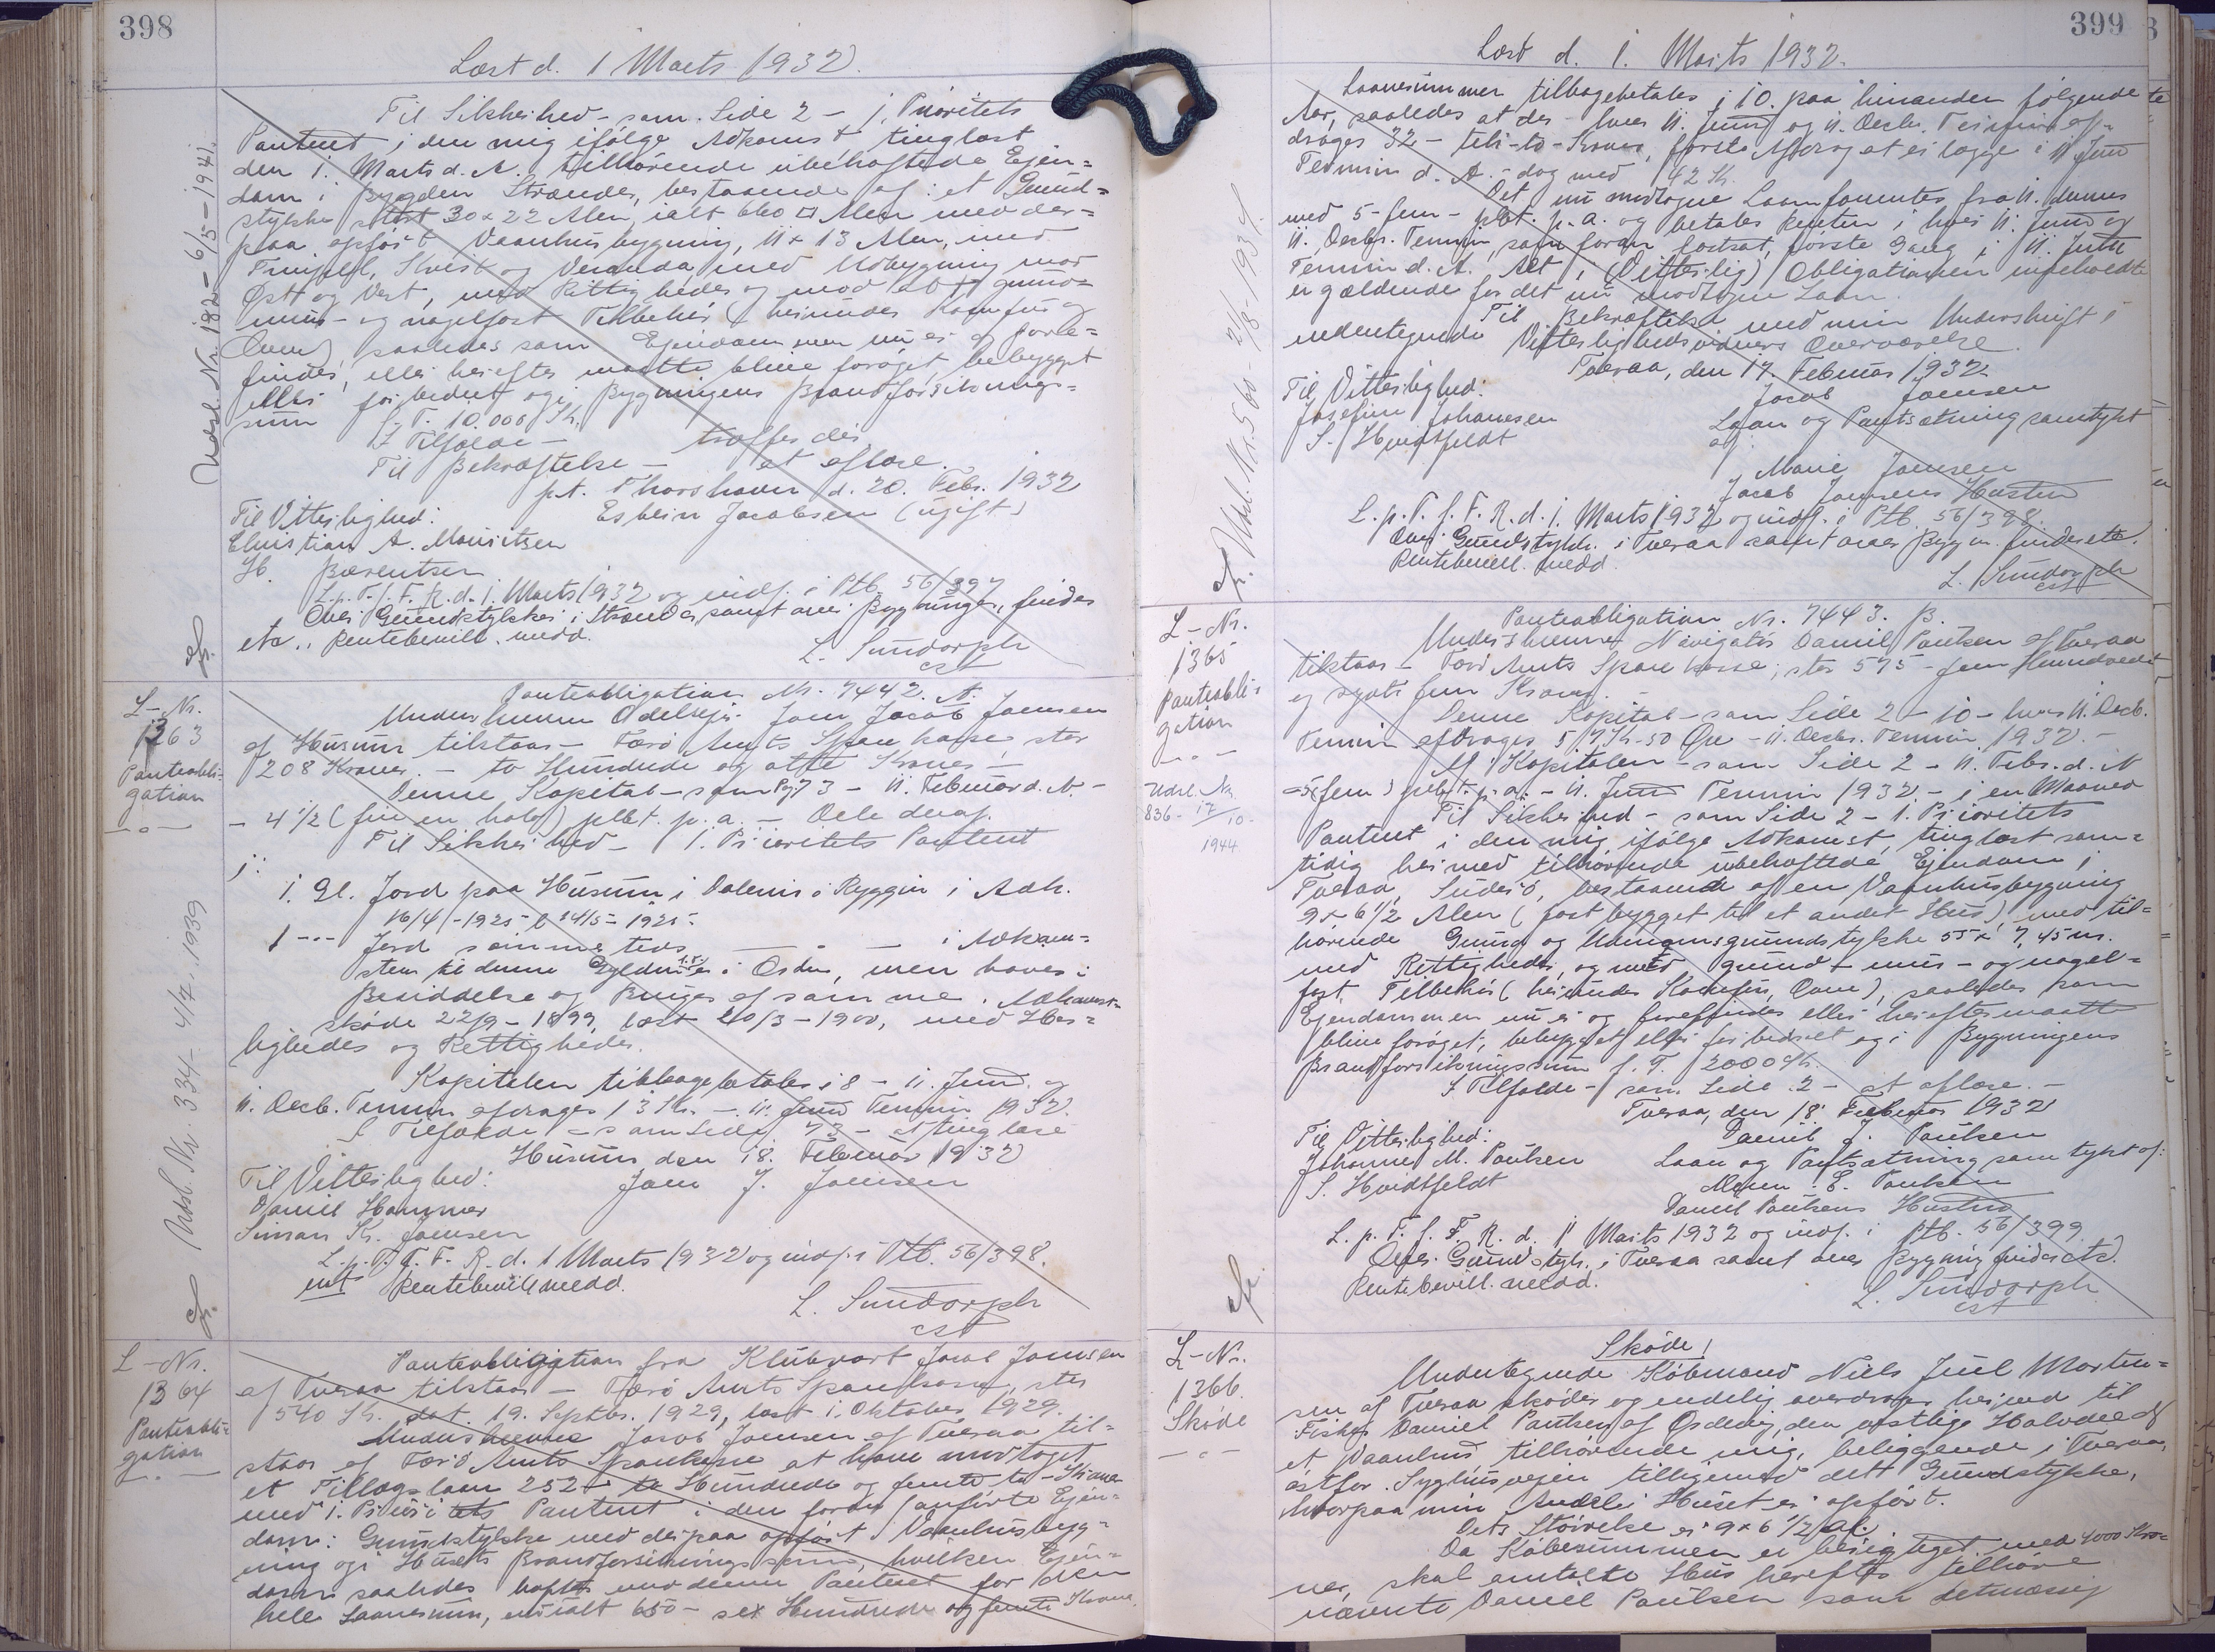 398
Læst d. 1 Marts 1932.
Til Sikkerhed - som Side 2 - 1. Prioritets
Panteret i den mig ifølge Adkomst tinglæst
den 1. Marts d. A. tilhørende ubehæftede Ejen=
dom i Bygden Strænder, bestaaende af: et Grund=
stykke stort 30 x 22 Alen, ialt 660 □ Alen med der=
paa opført Vaanhusbygning, 11 x 13 Alen, med
Kvist og Veranda, med Udbygning mod
Øst og Vest, med Rettigheder og med alt grund=
muur- og nagelfast Tilbehør (herunder Komfur og
Ovne), saaledes som Ejendommen nu er og fore=
findes, eller herefter maatte blive forøget, bebygget
eller forbedret og i Bygningens Brandforsikrings=
sum f. T. 10.000 Kr.
I Tilfælde - træffes der
Til Bekræftelse - at aflæse.
p.t. Thorshavn d. 20. Febr. 1932
Til Vitterlighed: Esbern Jacobsen (ugift)
Christian A. Mouritsen
H. Bærentsen
L. p. T. f. F. R. d. 1. Marts 1932 og indf. i Ptb. 56/397
Over Grundstykker i Strænder, samt over Bygninger, findes
etc., Rentebevill. medd.
L. Sundorph
cst
Udsl. Nr. 182 - 6/5 - 1941.
L-Nr.
1363
Panteobli-
gation
Panteobligation Nr. 7442. A.
Underskrevne Odelsejer Joen Jacob Joensen
af Husum tilstaar - Færø Amts Sparekasse, stor
208 Kroner. - to Hundrede og otte Kroner -
Denne Kapital - som Pg 73 - 11. Februar d. A. -
- 4 1/2 (fire en halv) pCt. p. a. - Dele deraf.
Til Sikkerhed - 1. Prioritets Panteret
i:
1. Gl. Jord paa Husum i Ryggin i Adk.
16/4 - 1925 - l. 14/5 - 1925.
1 --- Jord sammesteds - - - i Adkom=
sten
Besiddelse og Bruges af samme. Adkomst-
skøde 22/9 - 1899, læst 20/3 - 1900, med Her=
ligheder og Rettigheder.
Kapitalen tilbagebetales i 8 - 11. Juni og
11. Decb. Termin afdrages 13 Kr. - 11. Juni Termin 1932.
I Tilfælde - som Side 73 - at tinglæse
Husum den 18. Februar 1932
Til Vitterlighed: Joen J. Joensen
Daniel Hammer
Simon Kr. Joensen
L. p. T. f. F. R. d. 1 Marts 1932 og indf. i Ptb. 56/398.
Rentebevill medd.
L. Sundorph
cst
Udsl. Nr. 334 - 4/7. 1939
L-Nr.
1364
Panteobli=
gation
Panteobligation fra Klubvært Jacob Joensen
af Tveraa tilstaar - Færø Amts Sparekasse, stor
540 Kr. dat. 19. Septbr. 1929, læst 1. Oktober 1929.
Underskrevne Jacob Joensen af Tveraa til=
staar af Færø Amts Sparekasse at have modtaget
et Tillægslaan 252 - to Hundrede og femti to - Kroner
med 1. Prioritets Panteret i den foran anførte Ejen=
dom: Grundstykke med derpaa opført Vaanhusbyg=
ning og i Husets Brandforsikringssum, hvilken Ejen=
dom saaledes hæfter med denne Panteret for den
hele Laanesum, nu ialt 650 - sex Hundrede og femti Kroner.
399
Læst d. 1. Marts 1932.
Laanesummer tilbagebetales i 10 paa hinanden følgende
Aar, saaledes at der hver 11. Juni og 11. Decbr. Termin af=
drages 32 - treti-to - Kroner, første Afdrag at erlægge i 11 Juni
Termin d. A. - dog med 42 Kr.
Det nu modtagne Laan forrentes fra 11. dennes
med 5 - fem - pCt. p. a. og betales Renten i hver 11. Juni og
11. Decbr. Termin, som foran fastsat, første Gang i 11. Juni
Termin d. A. Alt i (Vitterlig) Obligationen indeholdte
er gældende for det nu modtagne Laan.
Til Bekræftelse med min Underskrift i
undertegnede Vitterlighedsvidners Overværelse.
Tveraa, den 17. Februar 1932.
Til Vitterlighed: Jacob Joensen
Josefine Johannesen Laan og Pantsætning samtykt
S. Hvidtfeldt af:
Marie Joensen
Jacob Joensens Hustru
L. p. T. f. F. R. d. 1. Marts 1932 og indf. i Ptb. 56/398.
Over Grundstykk. i Tveraa samt over Bygn. findes etc.
Rentebevill. medd.
L. Sundorph
cst
L-Nr.
1365
Panteobli=
gation
Udsl. Nr.
836 - 17/10 -
1944
Panteobligation Nr. 7443. B.
Underskrevne Navigatør Daniel Poulsen af Tveraa
tilstaar - Færø Amts Sparekasse, stor 575 - fem Hundrede
og syvti fem Kroner.
Denne Kapital - som Side 2 - 10 - hver 11. Decb.
Termin afdrages 57 Kr. 50 Øre - 11. Decbr. Termin 1932. -
Af Kapitalen - som Side 2 - 11. Febr. d. A
- 5 (fem) pCt. p. a. - 11. Juni Termin 1932 - i en Maaned
Til Sikkerhed - som Side 2 - 1. Prioritets
Panteret i den mig ifølge Adkomst, tinglæst sam=
tidig hermed tilhørende ubehæftede Ejendom i
Tveraa, Suderø, bestaaende af en Vaanhusbygning
9 x 6 1/2 Alen (fast bygget til et andet Hus) med til=
hørende Grund og Udengrundstykke 55 x 7,45 m.
med Rettigheder, og med grund - muur - og nagel=
fast Tilbehør (herunder Komfur, Ovne), saaledes som
Ejendommen nu er og forefindes eller herefter maatte
blive forøget, bebygget eller forbedret og i Bygningens
Brandforsikringssum f. T. 2000 Kr.
I Tilfælde - som Side 2 - at aflæse. -
Tveraa, den 18. Februar 1932
Til Vitterlighed: Daniel J. Poulsen
Johanne M. Poulsen Laan og Pantsætning samtykt af:
S. Hvidtfeldt E. Poulsen
Daniel Poulsens Hustru
L. p. T. f. F. R. d. 1 Marts 1932 og indf. i Ptb. 56/399
Over Grundstyk. i Tveraa samt over Bygning findes etc.
Rentebevill. medd.
L. Sundorph
cst
L-Nr.
1366.
Skøde
Skøde!
Undertegnede Købmand Niels Juul Morten=
sen af Tveraa skøder og endelig overdrager hermed til
Fisker Daniel Poulsen af Ørdevig, den østlige Halvdel af
et Vaanhus tilhørende mig, beliggende i Tveraa,
østfor Syghusvejen tilligemed det Grundstykke,
hvorpaa min Andel i Huset er opført.
Dets Størrelse er 9 x 6 1/2 al.
Da Købesummen er berigtiget med 4000 Kro=
ner, skal omtalte Hus herefter tilhøre
nævnte Daniel Poulsen som retmæssig